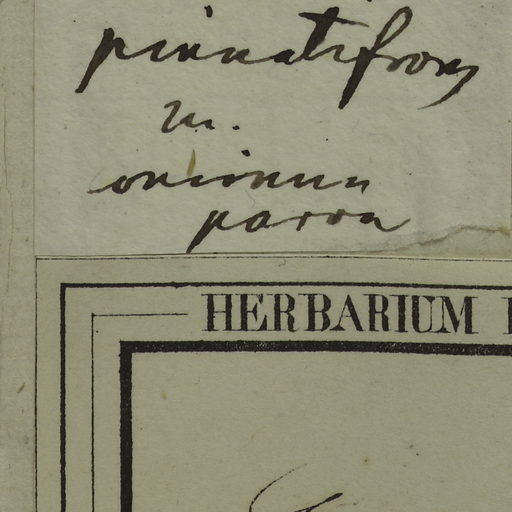 pinnatifrons
m.
parva
HERBARIUM